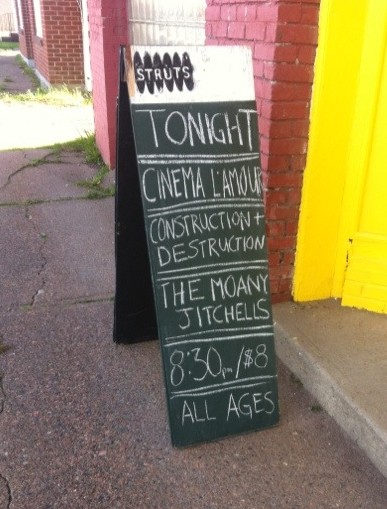 STRUTS
TONIGHT
CINEMA L'AMOUR
CONSTRUCTION +
DESTRUCTION
THE MOANY
JITCHELLS
8:30pm/$8
ALL AGES